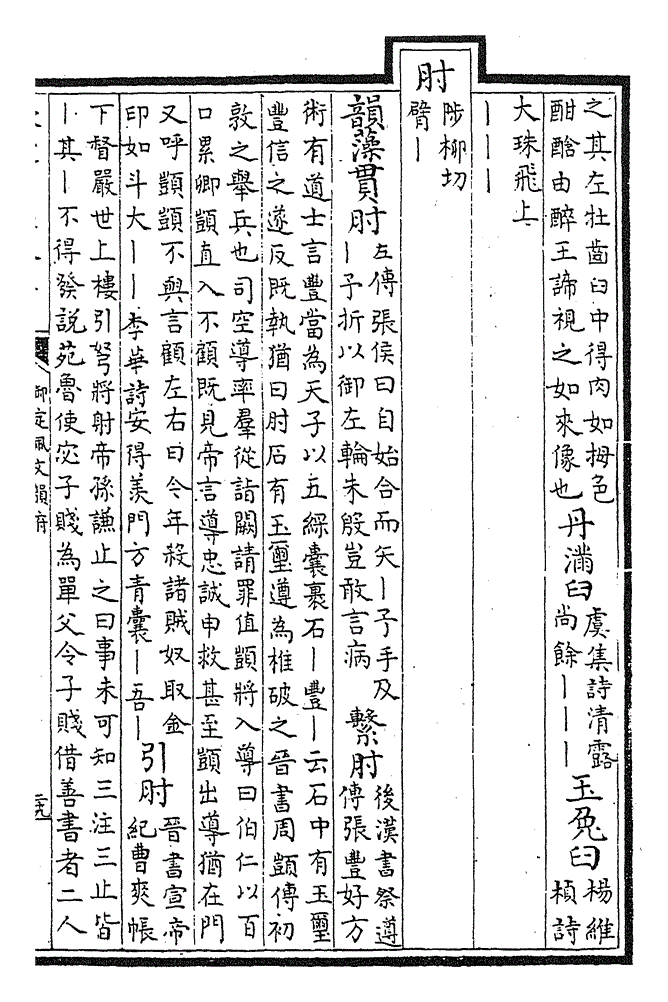 之其左牡齒臼中得肉如拇色
酣醄由醉王諦視之如來像也
丹滿臼
虞集詩清露
尚餘｜｜｜
玉兔臼
楊維
楨詩
大珠飛上
｜｜｜
肘
陟柳切
臂｜
韻藻貫肘
左傳張侯曰自始合而矢｜予手及
｜予折以御左輪朱殷豈敢言病
繫肘
後漢書祭遵
傳張豐好方
術有道士言豐當為天子以五綵囊裹石｜豐｜云石中有玉璽
豐信之遂反既執猶曰肘石有玉璽遵為椎破之晉書周顗傳初
敦之舉兵也司空導率羣從詣闕請罪值顗將入導曰伯仁以百
口累卿顗直入不顧既見帝言導忠誠申救甚至顗出導猶在門
又呼顗顗不與言顧左右曰今年殺諸賊奴取金
印如斗大｜｜李華詩安得羨門方青囊｜吾｜
引肘
晉書宣帝
紀曹爽帳
下督嚴世上樓引弩將射帝孫謙止之曰事未可知三注三止皆
｜其｜不得發說苑魯使宓子賤為單父令子賤借善書者二人
御定佩文韻府